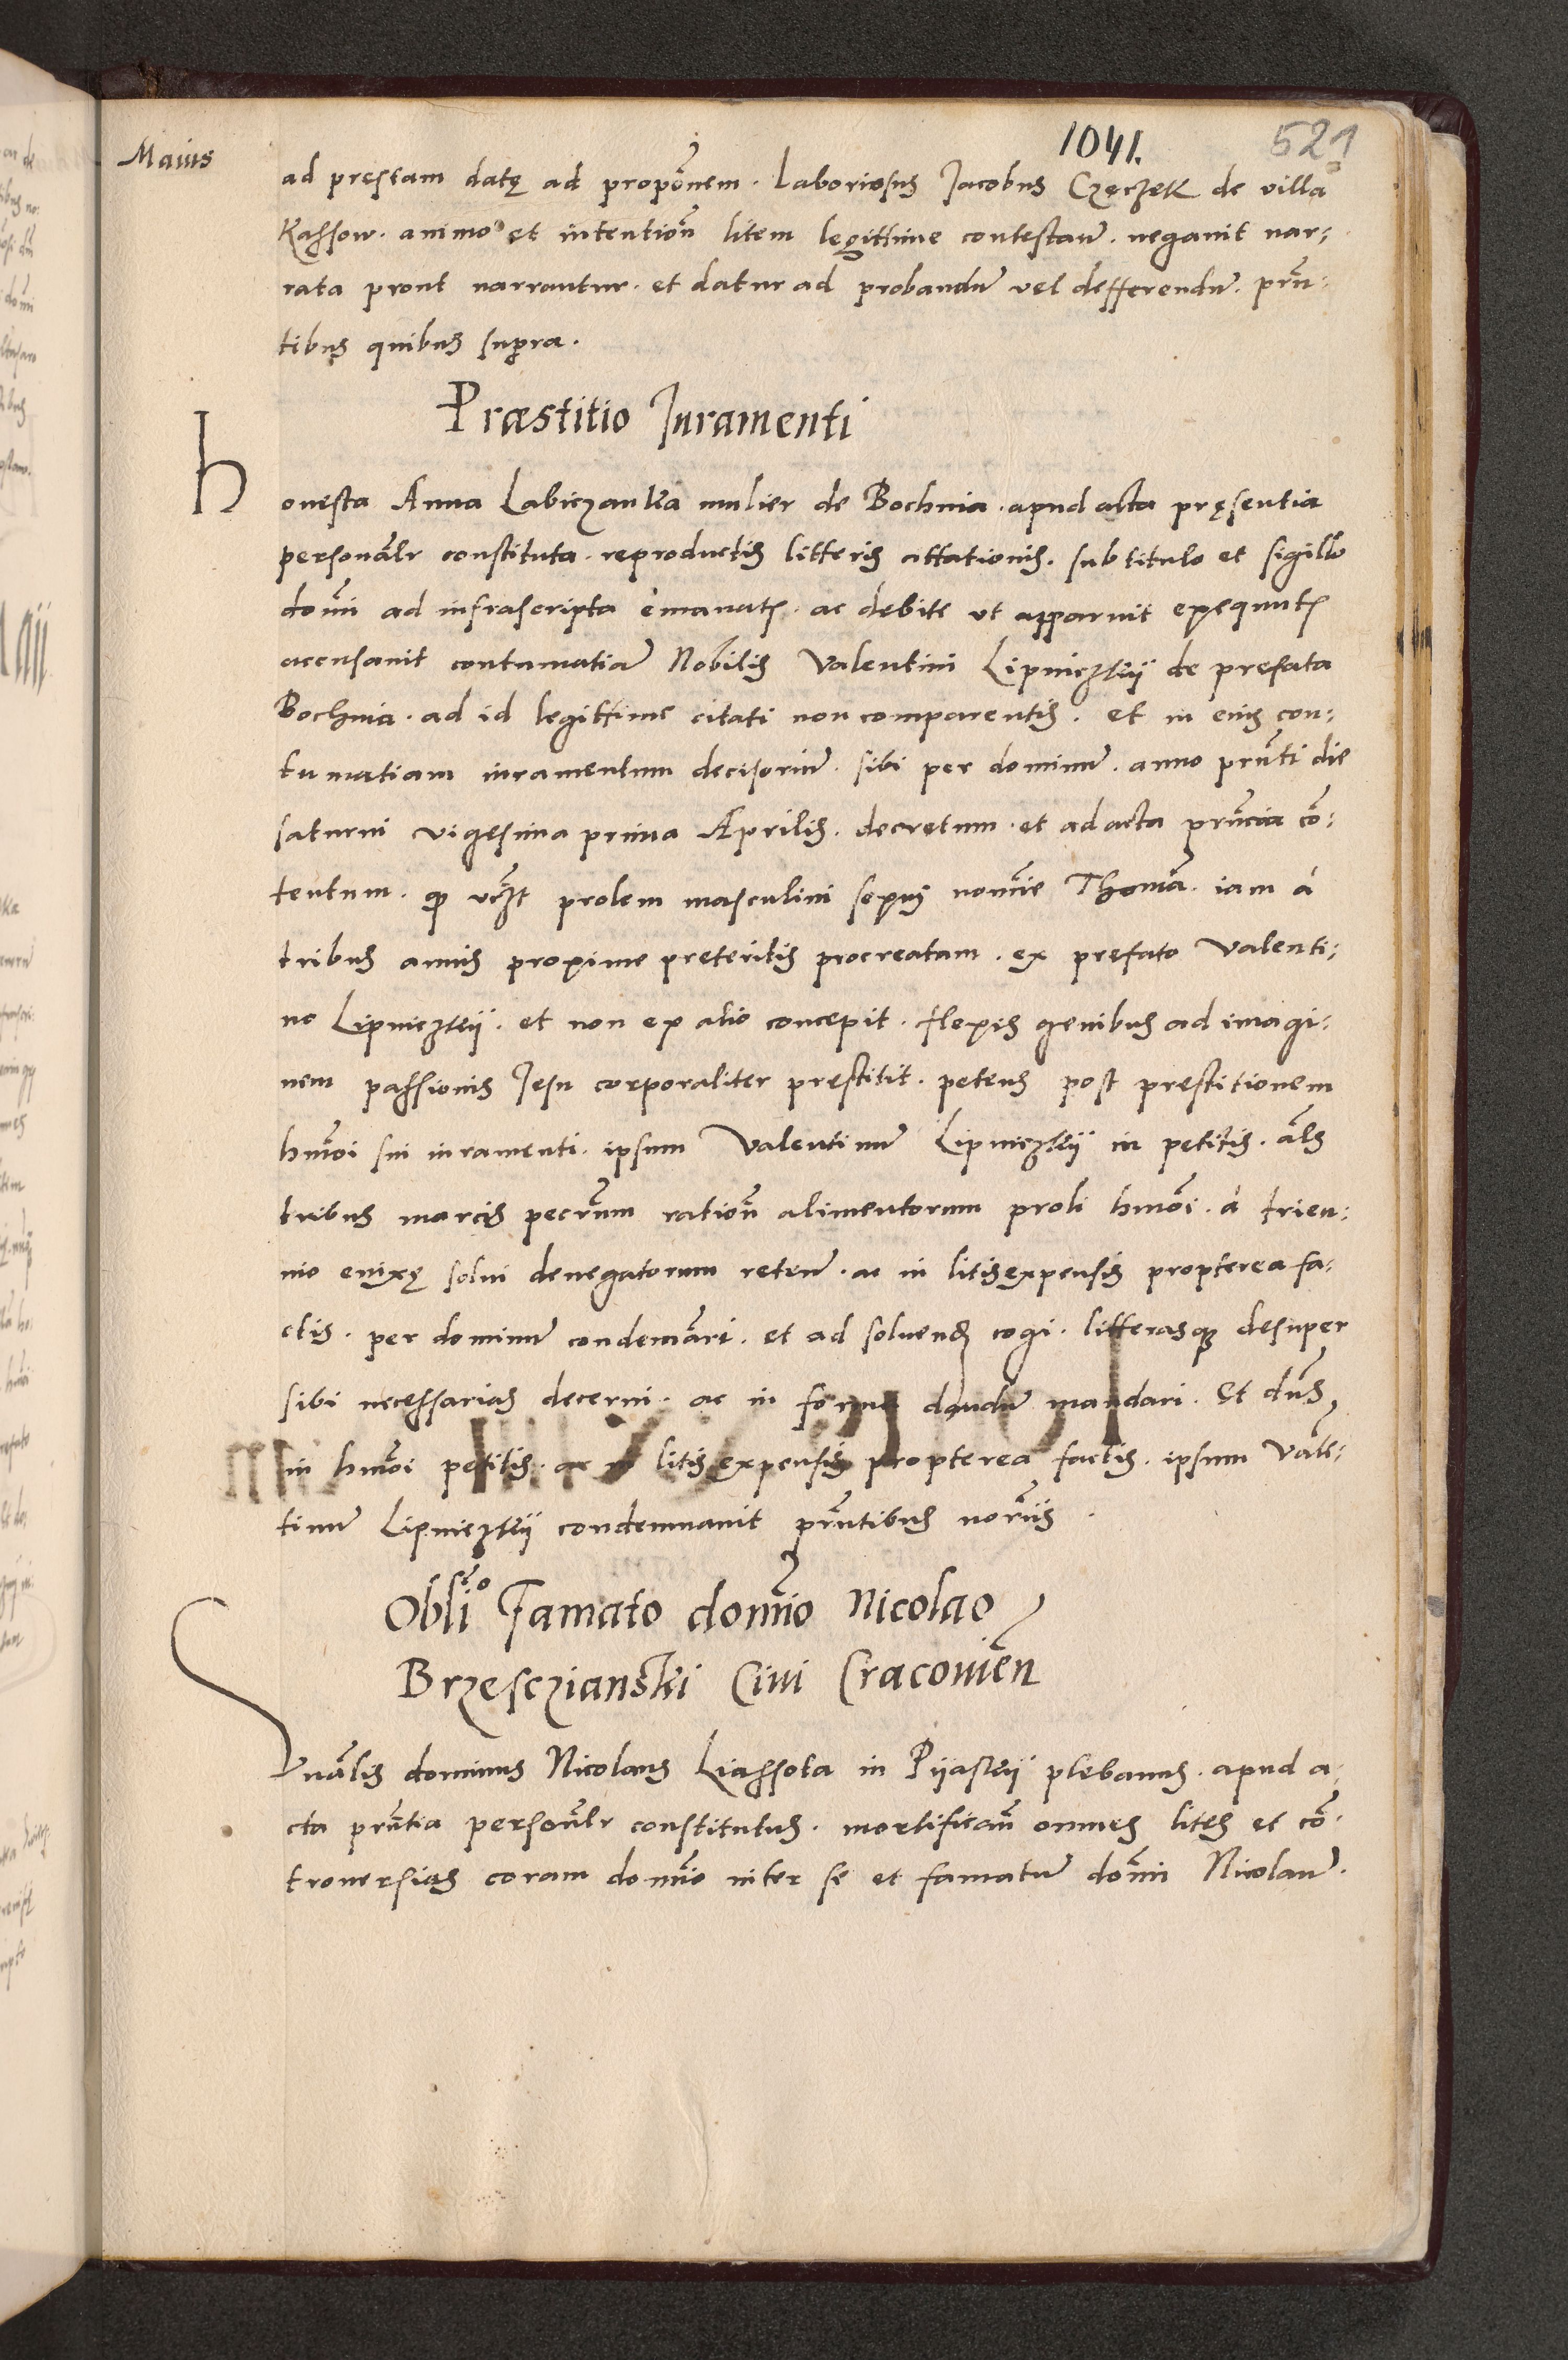 Maius
1041.
521
ad pressam datę ad propōnem. Laboriosus Jacobus Częczek de villa
Kassow. animo et intentiōn litem legittime contestanᵈ. negauit nar:
rata prout narrantur. et datur ad probandū vel defferendū. prn̄:
tibus quibus supra.
Præstitio Juramenti
Honesta Anna Labiczanka mulier de Bochnia. apud acta pręsentia
personalr̄ constituta. reproductis litteris citationis. sub titulo et sigillo
domī ad infrascripta emanatis. ac debite ut apparuit exequutis
accusauit contumatiā Nobilis Valentini Lipniczkij de prefata
Bochnia. ad id legittime citati non comparentis. et in eius con:
tumatiam iuramentum decisoriū. sibi per dominū. anno prn̄ti die
saturni vigesima prima Aprilis. decretum. et ad acta prn̄cia cō:
tentum. q̄ vcz̄t prolem masculini sexus nomīe Thomā. iam á
tribus annis proxime preteritis procreatam. ex prefato Valenti:
no Lipniczkij. et non ex alio concepit. flexis genibus ad imagi:
nem passionis Jesu corporaliter prestitit. petens post prestitionem
hmōi sui iuramenti. ipsum Valentinū Lipniczkij in petitis. al̄s
tribus marcis pecr̄um ratiōn alimentorum proli hmōi. á trien:
nio enixę solui denegatorum retenᵗ. ac in litis expensis propterea fa:
ctis. per dominū condemāri. et ad soluendᵘ cogi. litterasq; desuper
sibi necessarias decerni. ac in forma dandū mandari. Et dn̄s
in hmōi petitis. ac in litis expensis propterea factis. ipsum Valē:
tinū Lipniczkij condemnauit prn̄tibus nor̄iis.
Obli͞o Famato domīo Nicolao
Brzesczianski Ciui Cracouieñ
Vnālis dominus Nicolaus Liassota in Pijaskij plebanus. apud a:
cta prn̄tia personalr̄ constitutus. mortificanᵈ omnes lites et cō:
trouersias coram domīo inter se et famatū domī Nicolaū.